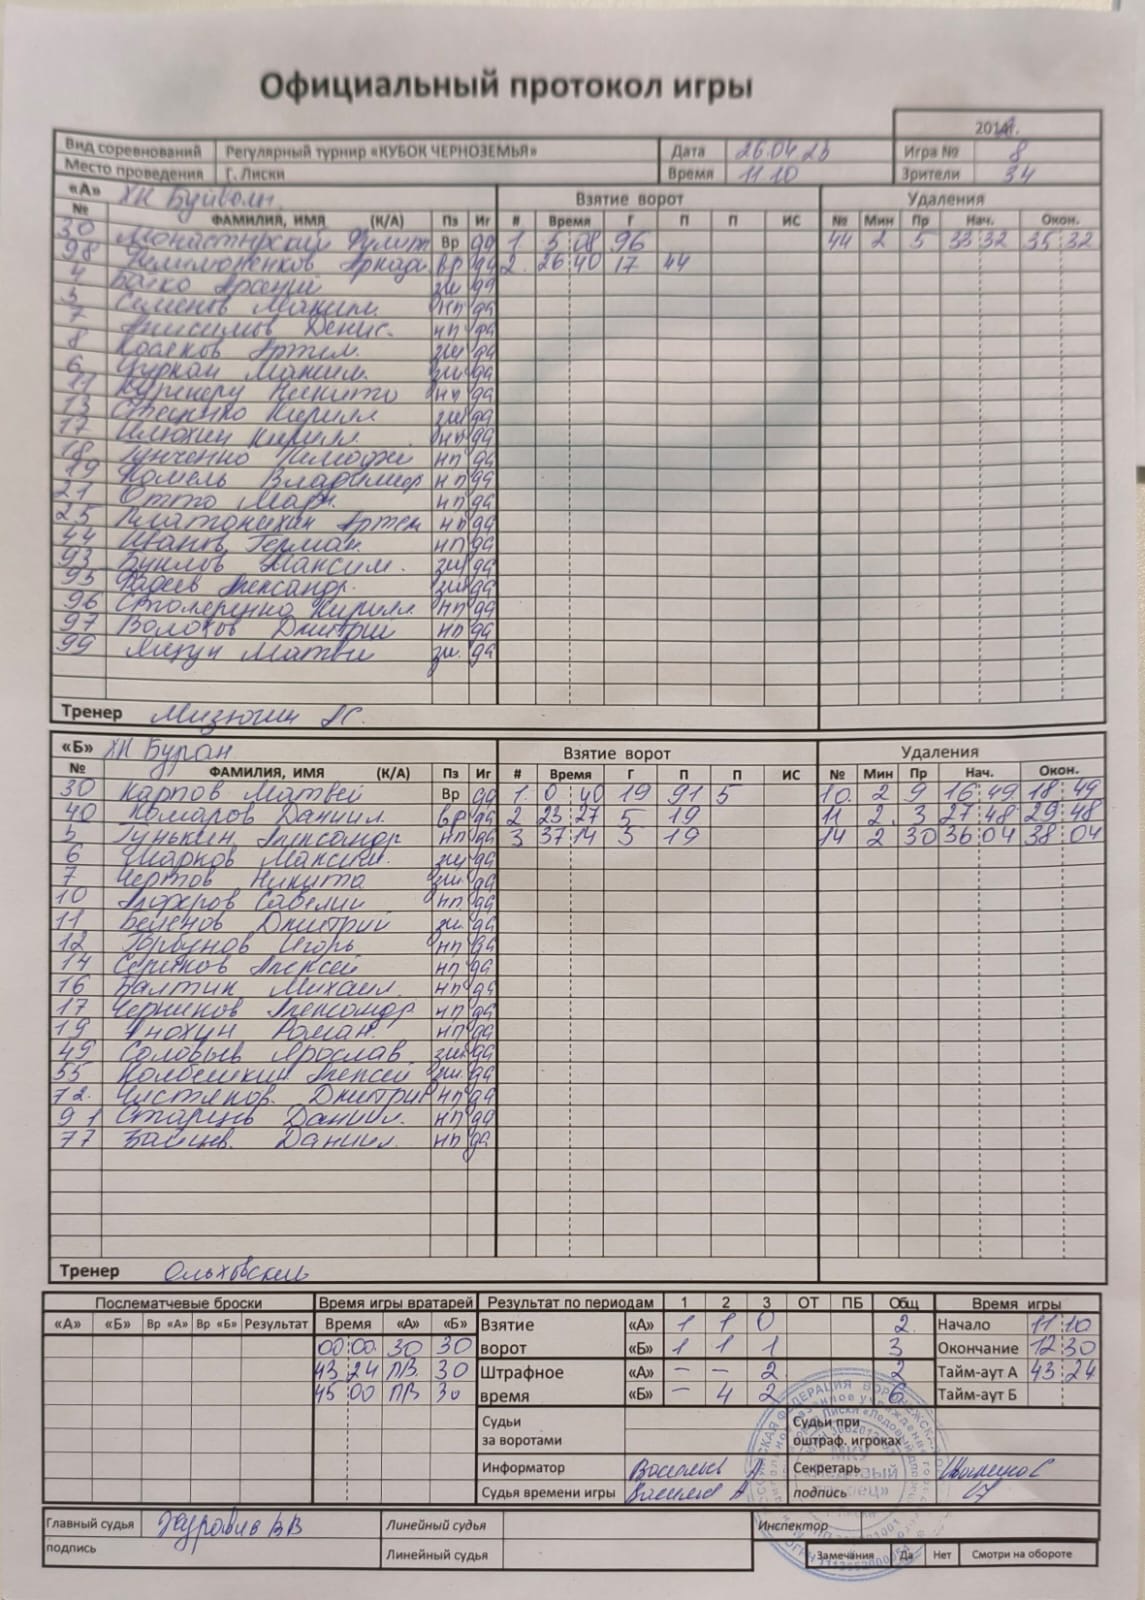 Официальный протокол игры
Вид соревнований Регулярный турнир «КУБОК ЧЕРНОЗЕМЬЯ» Дата 26.04.23 Игра № 8
Место проведения Г. Лиски Время 11.10 Зрители 34
«А» ХК Буйволы Взятие ворот Удаления
№ ФАМИЛИЯ, ИМЯ (К/А) Пз Иг # Время Г П П ИС № Мин Пр Нач. Окон.
30 Монастырский Вр да 1. 5 08 96 44 2 5 33 32 35 32
98 вр да 2. 26 40 17 44
4 Бойко Арсений зщ да
3 Семенов Максим. нп да
7 Анисимов Денис. нп да
8 Косяков Артем. зщ да
6 Цуркан Максим. зщ да
11 Никита нп да
13 Кирилл зщ да
17 Илюхин Кирилл. нп да
18 нп да
19 Владимир нп да
21 Отто Марк. нп да
25 Платонихин Артем нп да
44 Иванов Герман. нп да
93 Максим. зщ да
95 Фадеев Александр. зщ да
96 Столяренко Кирилл. нп да
97 Волохов Дмитрий нп да
99 Яицун Матвей зщ. да
Тренер Мизюгин
«Б» ХК Буран Взятие ворот Удаления
№ ФАМИЛИЯ, ИМЯ (К/А) Пз Иг # Время Г П П ИС № Мин Пр Нач. Окон.
30 Карпов Матвей Вр да 1. 0 40 19 91 5 10. 2 9 16 49 18 49
40 Комаров Даниил. вр да 2 23 27 5 19 11 2. 3 27 48 29 48
5 Гунькин Александр нп да 3 37 14 5 19 14 2 30 36 04 38 04
6 Шарков Максим. зщ да
7 Чертов Никита зщ. да
10 Алферов Савелий нп да
11 Беленов Дмитрий зщ. да
12 Горбунов Игорь нп да
14 Сериков Алексей нп да
16 Балтин Михаил. нп да
17 Черников Александр нп да
19 Анохин Роман. нп да
49 Соловьев Ярослав зщ да
55 Колбешкин Алексей зщ. да
72. Чистяков. Дмитрий нп да
91 Старцев Даниил. нп да
77 Даниил. нп да
Тренер Ольховский
Послематчевые броски Время игры вратарей Результат по периодам 1 2 3 ОТ ПБ Общ Время игры
«А» «Б» Вр «А» Вр «Б» Результат Время «А» «Б» Взятие «А» 1 1 0 2 Начало 11 10
00 00 30 30 ворот «Б» 1 1 1 3 Окончание 12 30
43 24 ПВ. 30 Штрафное «А» – – 2 2 Тайм-аут А 43 24
45 00 ПВ 30 время «Б» – 4 2 6 Тайм-аут Б
Судьи за воротами Судьи при оштраф. игроках
Информатор Васильев А Секретарь
Судья времени игры Васильев А подпись
Главный судья Журавлев ВВ Линейный судья Инспектор
подпись Линейный судья Замечания Да Нет Смотри на обороте